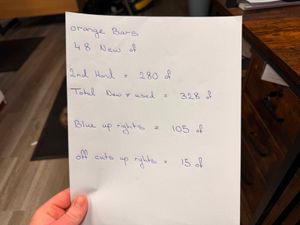 orange Bars
48 New of
2nd Hand = 280 of
Total New & used = 328 of
Blue up rights = 105 of
off cuts up rights = 15 of